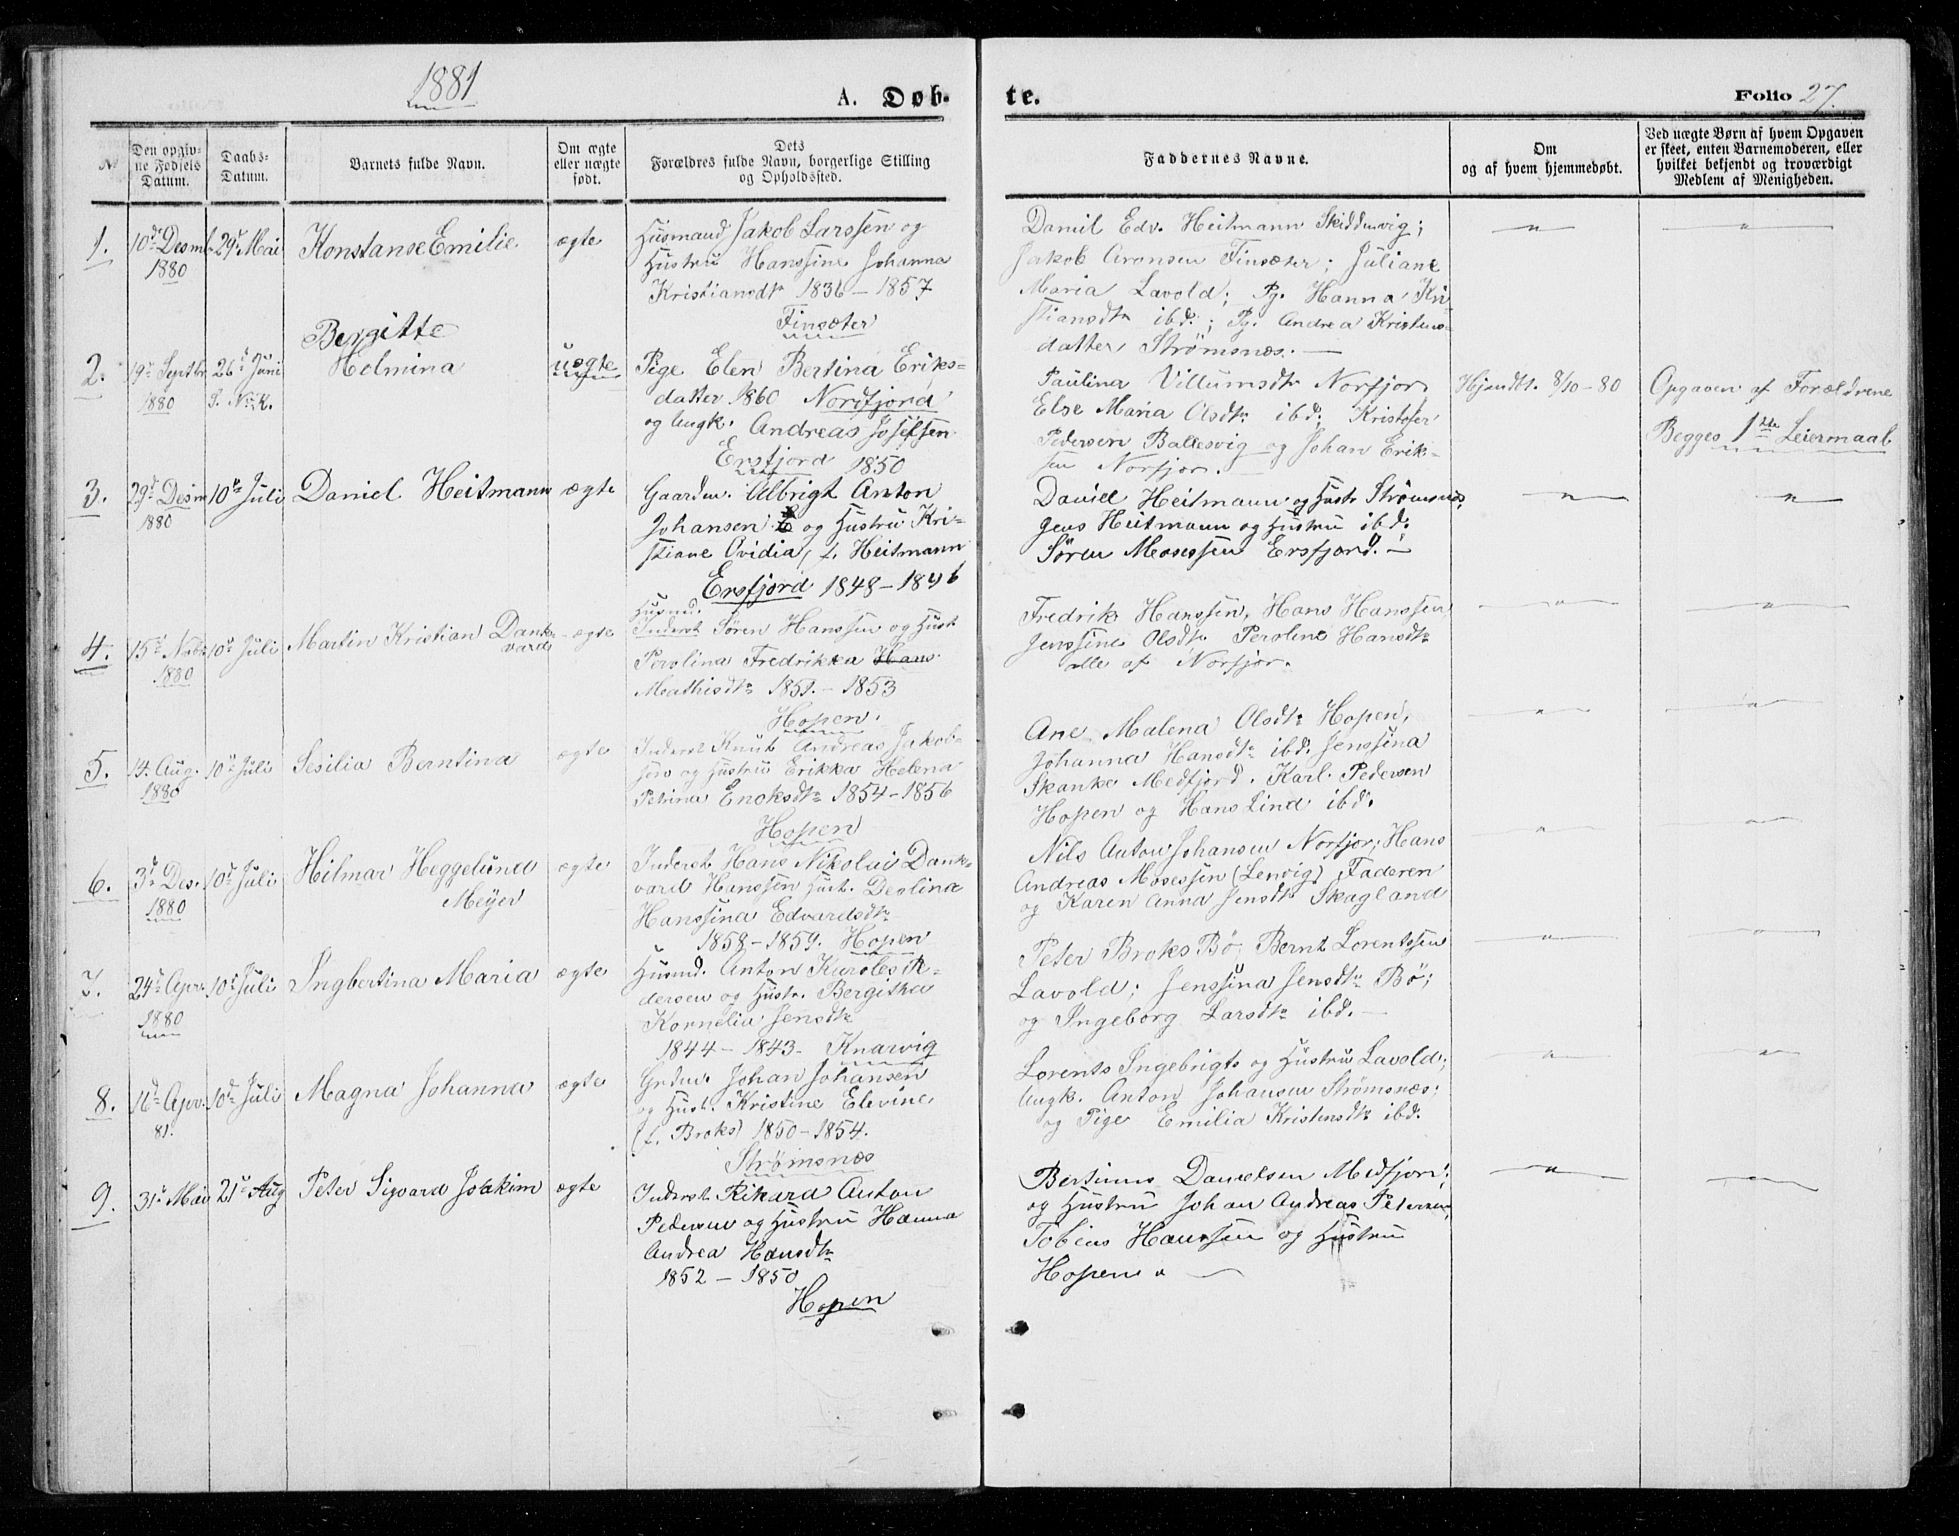 1881
A. Døb-
te.
Folio 27.
№
Den opgiv-
ne Fødsels
Datum.
Daabs-
Datum.
Barnets fulde Navn.
Om ægte
eller uægte
født.
Dets
Forældres fulde Navn, borgerlige Stilling
og Opholdssted.
Faddernes Navne.
Om
og af hvem hjemmedøbt.
Ved uægte Børn af hvem Opgaven
er skeet, enten Barnemoderen, eller
hvilket bekjendt og troværdigt
Medlem af Menigheden.
1.
10d Desmb
1880
29d Mai
Konstanse Emilie
ægte
Husmand Jakob Larssen og
Hustru Hanssine Johanna
Kristiansdtr 1836 – 1857
Finsæter
Daniel Edv. Heitmann Skiddenvig;
Jakob Aronsen Finsæter; Juliane
Maria Lavold; Pg. Hanna Kri
stiansdtr ibd.; Pg. Andrea Kristens-
datter Strømsnes. —
— " —
— " —
2.
19d Septbr
1880
26d Juni
S. N. K.
Bergitte
Helmina
uægte
Pige Elen Bertina Eriks-
datter 1860 Nordfjord
og Ungk. Andreas Josefsen
Ersfjord 1850
Paulina Villumsdtr Norfjor
Else Maria Olsdtr ibd; Kristofer
Pedersen Ballesvig og Johan Erik-
sen Norfjor.
Hjemdt. 8/10 – 80
Opgaven af Forældrene
Begges 1ste Leiermaal
3.
29d Desm
1880
10de Juli
Daniel Heitmann
ægte
Gaardm. Albrigt Anton
Johansen E og Hustru Kri-
stiane Ovidia, f. Heitmann
Ersfjord 1848 – 1846
Daniel Heitmann og Hustr Strømsnes,
Jens Heitmann og Hustru ibd.
Søren Mosessen Ersfjord. —
— " —
— " —
4.
15d Novb.
1880
10d Juli
Martin Kristian Dank-
vard
ægte
Husmd.
Inderst Søren Hanssen og Hust
Perolina Fredrikka Hans
Mathisdtr 1851. – 1853
Hopen.
Fredrik Hanssen, Hans Hanssen
Jenssine Olsdtr Peroline Hansdtr
alle af Norfjor.
— " —
— " —
5.
14. Aug.
1880
10d Juli
Sesilia Berntina
ægte
Inderst Knut Andreas Jakob-
sen og Hustru Erikka Helena
Petrina Enoksdtr 1854 – 1856
Hopen
Ane Malena Olsdtr Hopen,
Johanna Hansdtr ibd. Jenssina
Skanke Medfjord. Karl Pedersen
Hopen og Hans Lind ibd.
— " —
— " —
6.
3d Des.
1880
10d Juli
Hilmar Heggelund
Meyer
ægte
Inderst Hans Nikolai Dank-
vard Hanssen Hust. Deolina
Hanssina Edvardsdtr
1858 – 1859. Hopen
Nils Anton Johansen Norfjor; Hans
Andreas Mosessen (Lenvig) Faderen
og Karen Anna Jensdtr Skagland
— " —
— " —
7.
24d Apr.
1880
10d Juli
Ingbertina Maria
ægte
Husmd. Anton Kuroles P-
dersen og Hustr. Bergitha
Kornelia Jensdtr
1844 – 1843 – Knarvig
Peter Broks Bö, Bernt Lorentssen
Lavold; Jenssina Jensdtr Bö;
og Ingeborg Larsdtr ibd. —
— " —
— " —
8.
16d Apr.
81.
10d Juli
Magna Johanna
ægte
Grdm. Johan Johansen
og Hust. Kristine Elevine
(f. Broks) 1850 – 1854.
Strømsnæs
Lorents Ingebrigts og Hustru Lavold;
Ungk. Anton Johansen Strømsnæs;
og Pige Emilia Kristensdtr ibd.
— " —
— " —
9.
31d Mai
21d Aug
Peter Sigvard Joakim
ægte
Inderst Rikard Anton
Pedersen og Hustru Hanna
Andrea Hansdtr
1852 – 1850
Hopen
Bertinus Danielsen Medfjord;
og Hustru Johan Andreas Petersen,
Tobias Hanssen og Hustru
Hopen. —
— " —
— " —